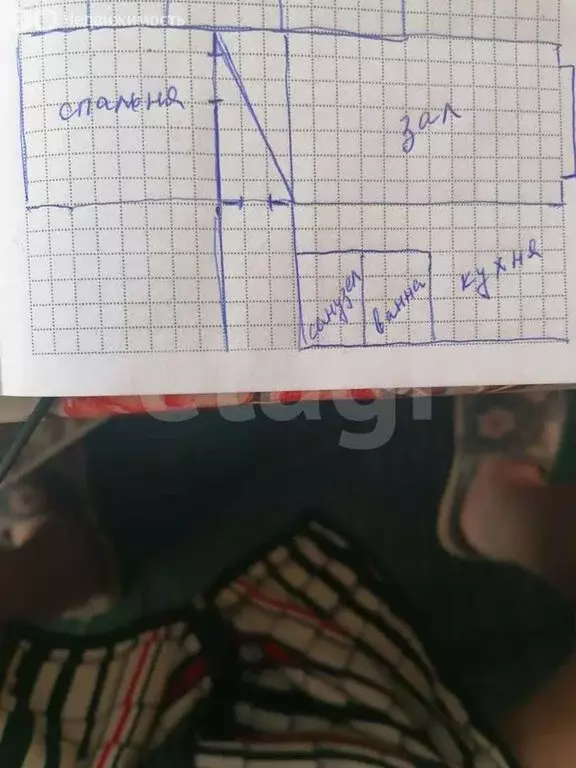 Недвижимость
спальня
зал
кухня
санузел
ванна
etagi